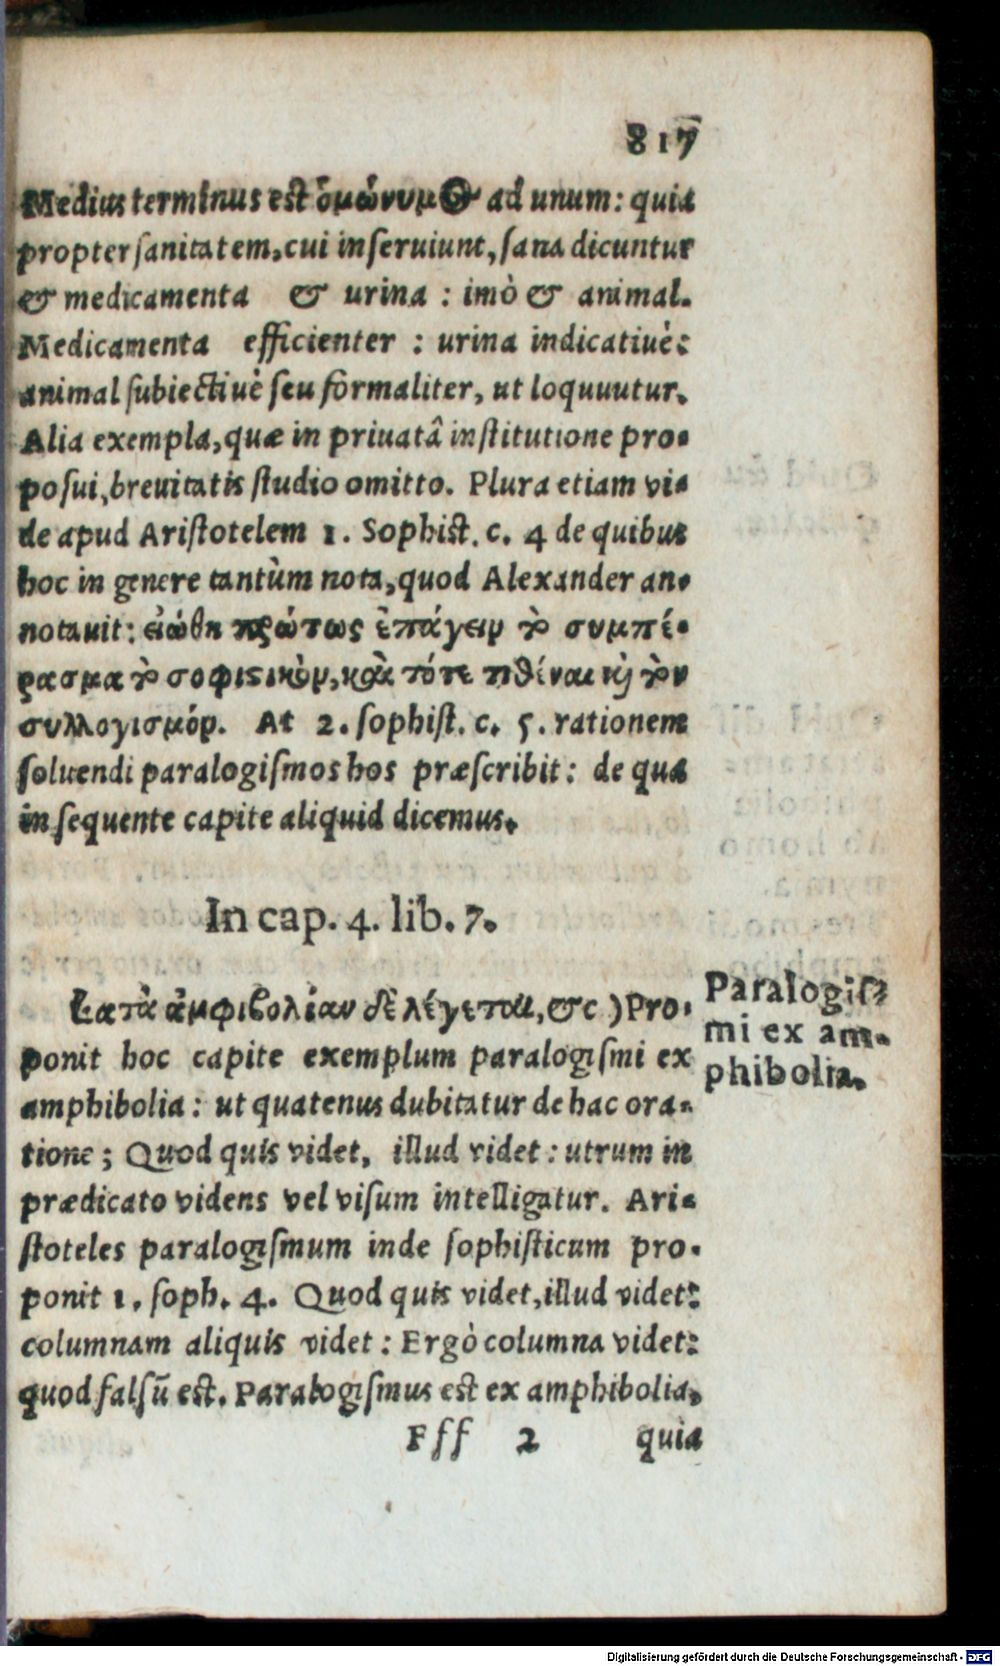 817
Medius terminus est ὁμώνυμος ad unum: quia
propter sanitatem, cui inseruiunt, sana dicuntur
& medicamenta & urina : imò & animal.
Medicamenta efficienter : urina indicatiuè:
animal subiectiuè seu formaliter, ut loquuutur.
Alia exempla, quæ in priuatâ institutione pro-
posui, breuitatis studio omitto. Plura etiam vi-
de apud Aristotelem 1. Sophist. c. 4 de quibus
hoc in genere tantùm nota, quod Alexander an-
notauit: εἰώθη πρώτως ἐπάγειν τὸ συμπέ-
ρασμα τὸ σοφιστικὸν, καὶ τότε τιθέναι καὶ τὸν
συλλογισμόν. At 2. sophist. c. 5. rationem
soluendi paralogismos hos præscribit: de qua
in sequente capite aliquid dicemus.
In cap. 4. lib. 7.
Κατὰ ἀμφιβολίαν δὲ λέγεται, &c ) Pro-
ponit hoc capite exemplum paralogismi ex
amphibolia : ut quatenus dubitatur de hac ora-
tione ; Quod quis videt, illud videt : utrum in
prædicato videns vel visum intelligatur. Ari-
stoteles paralogismum inde sophisticum pro-
ponit 1. soph. 4. Quod quis videt, illud videt:
columnam aliquis videt : Ergò columna videt:
quod falsũ est. Paralogismus est ex amphibolia,
Fff 2 quia
Paralogis-
mi ex am-
phibolia.
Digitalisierung gefördert durch die Deutsche Forschungsgemeinschaft - DFG